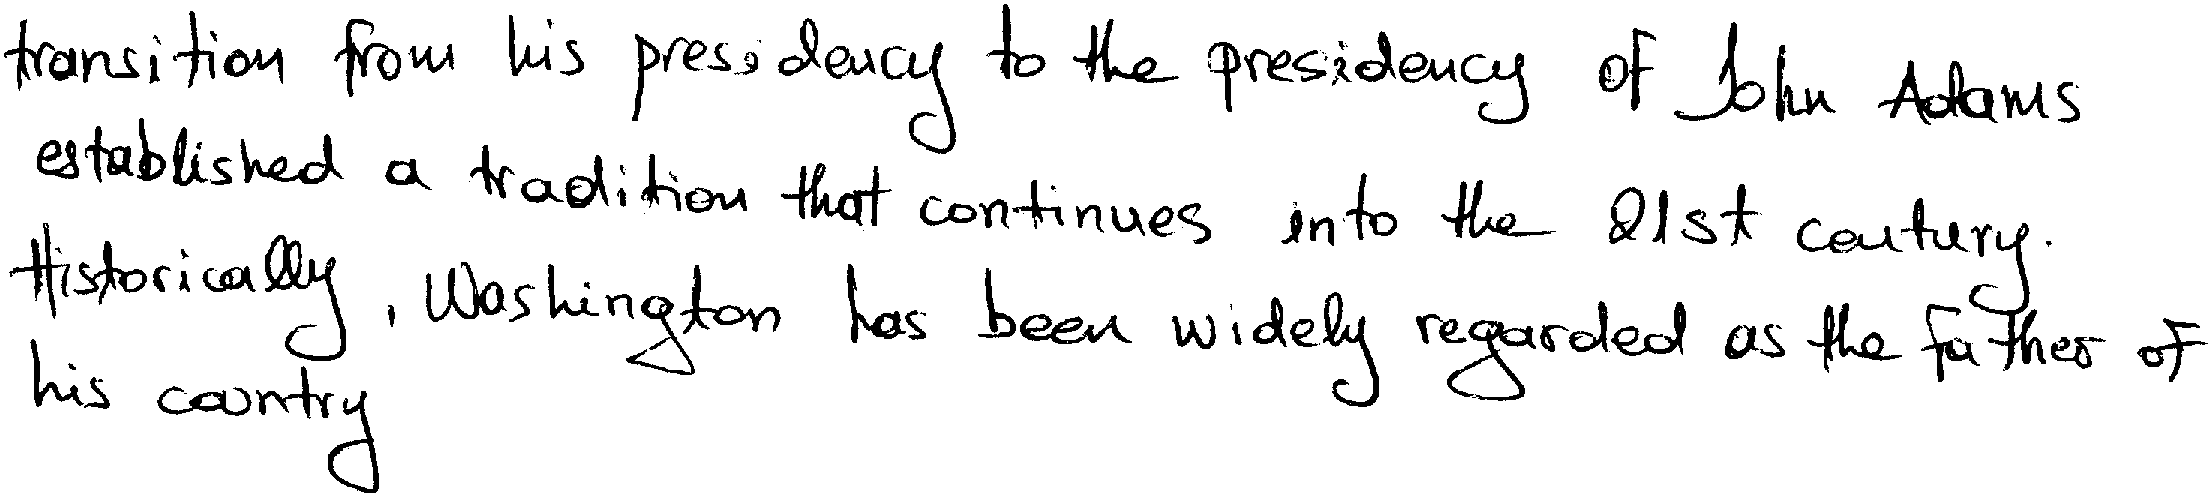 transition from his presidency to the presidency of John Adams
established a tradition that continues into the 21st century.
Historically, Washington has been widely regarded as the father of
his country